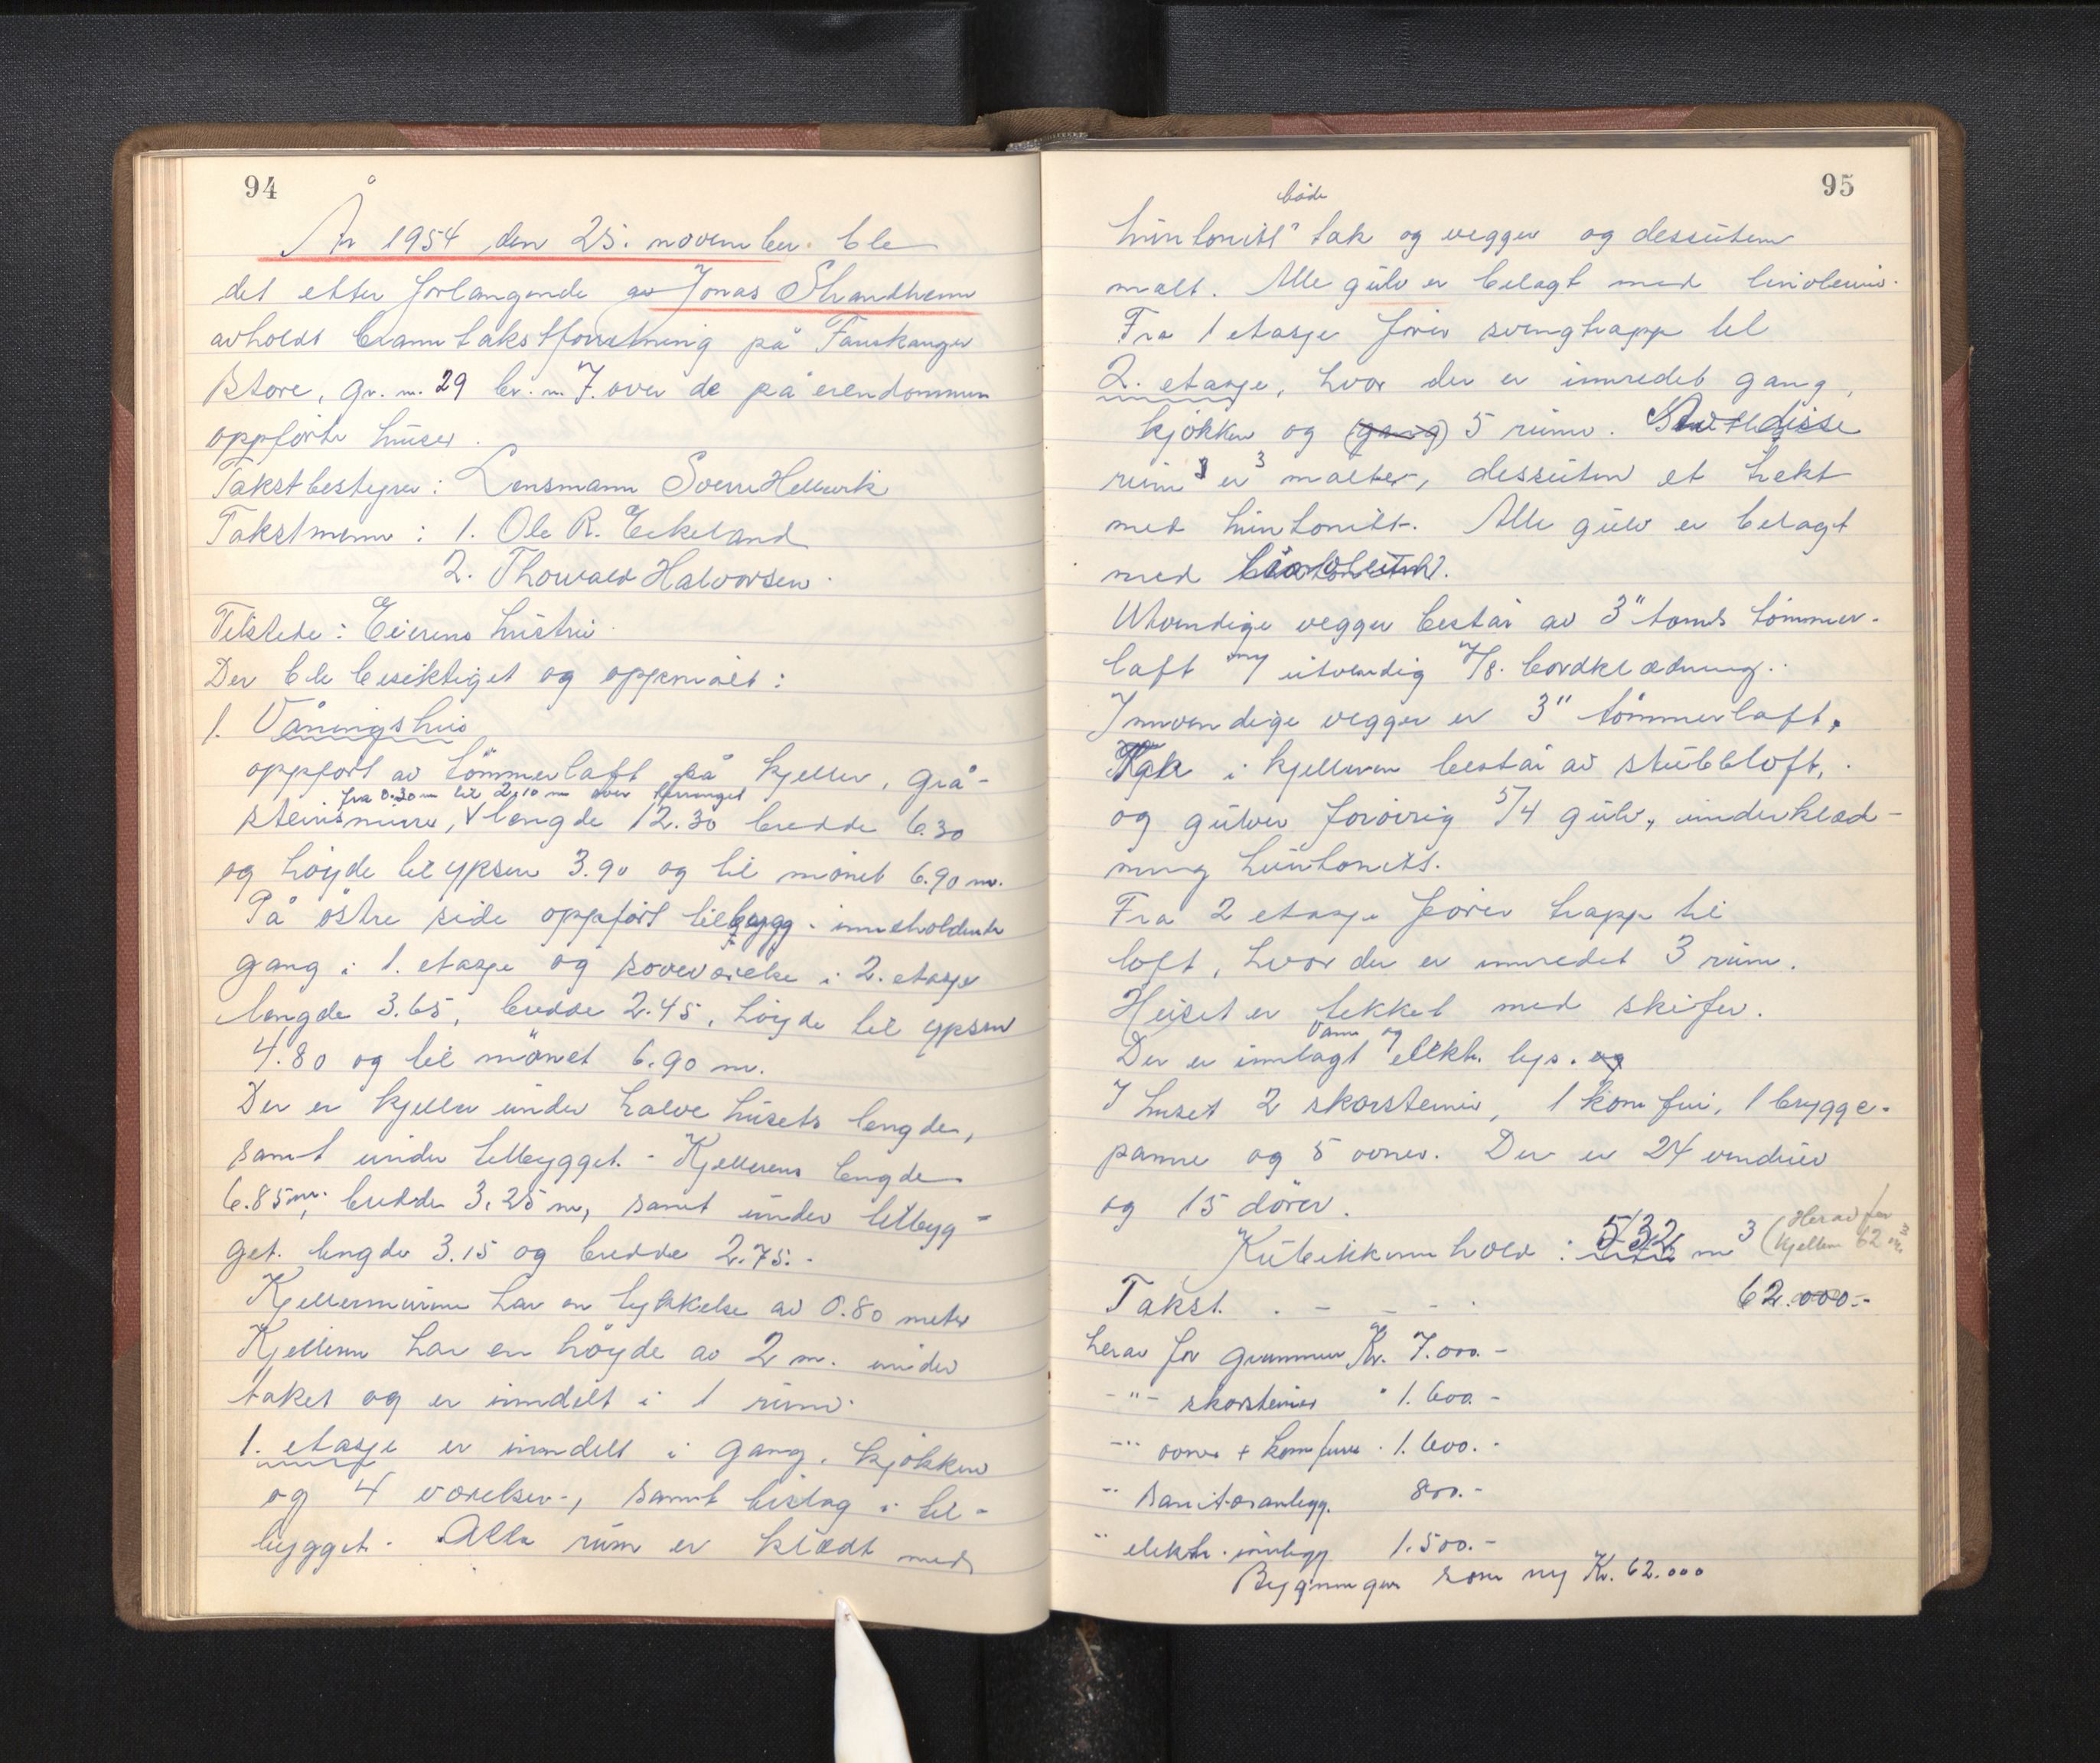 94
År 1954 den 25. november ble
det etter forlangende av Jonas Strandheim
avholdt branntakstforretning på Fauskanger
Store, gr. nr. 29 br. nr. 7. over de på eiendommen
oppførte huser.
Takstbestyrer: Lensmann Sverre Hellevik
Takstmenn: 1. Ole R. Eikeland
2. Thorvald Halvorsen.
Tilstede: Eierens hustru.
Der ble besiktiget og oppmålt:
1. Våningshus
oppført av tömmerlaft på kjeller, grå-
fra 0.30 m til 2.10 m over terrenget
steinsmurer, lengde 12.30 bredde 6.30
og höyde til gpsen 3.90 og til mönet 6.90 m.
På östre side oppfört tilbygg inneholdende
gang i 1. etasje og soveværelse i 2. etasje
lengde 3.65, bredde 2.45, höyde til gpsen
4.80 og til mönet 6.90 m.
Der er kjeller under halve husets lengde,
samt under tilbygget. - Kjellerens lengde
6.85 m, bredde 3.25 m, samt under tilbyg-
get. lengde 3.15 og bredde 2.75. -
Kjellermurene har en tykkelse av 0.80 meter
Kjelleren har en höyde av 2 m. under
taket og er inndelt i 1 rum.
1. etasje er inndelt i gang, kjökken
og 4 værelser, samt bislag i til-
bygget. Alle rum er klædt med
95
både
huntonitt tak og vegger og dessuten
malt. Alle gulv er belagt med linoleum.
Fra 1 etasje förer svingtrapp til
2. etasje, hvor der er innredet gang,
kjökken og (gang) 5 rum. Av disse
rum er 3 malte, dessuten et trekt
med huntonitt. Alle gulv er belagt
med
Utvendige vegger består av 3" toms tömmer-
laft m/ utvendig 7/8. bordklædning.
Innvendige vegger er 3" tömmerlaft.
Tak i kjelleren består av stubbloft,
og gulver forövrig 5/4 gulv, underklæd-
ning huntonitt.
Fra 2 etasje förer trapp til
loft, hvor der er innredet 3 rum.
Huset er tekket med skifer.
vann og
Der er innlagt elektr. lys. og
I huset 2 skorsteiner, 1 komfur, 1 brygge-
panne og 5 ovner. Der er 24 vinduer
og 15 dörer.
Kubikkinnhold: 532 m3 (Herav for
kjelleren 62 m3
Takst. - - - 62.000.-
herav for grunnmur Kr. 7.000.-
-"- skorsteiner " 1.600.-
-"- ovner + komfurer " 1.600.-
-"- sanitæranlegg. 800.-
" elektr. innlegg 1.500.-
Bygningen som ny Kr. 62.000